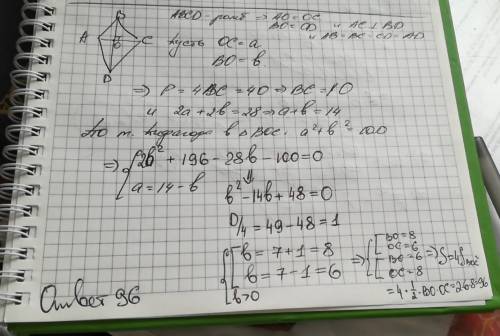 B
A
O
C
D
ABCD - ромб ⇒ AO = OC
BO = OD и AC ⊥ BD
и AB = BC = CD = AD
Пусть OC = a
BO = b
⇒ P = 4BC = 40 ⇒ BC = 10
и 2a + 2b = 28 ⇒ a + b = 14
По т. Пифагора в △BOC: a² + b² = 100
⇒ { 2b² + 196 - 28b - 100 = 0
a = 14 - b
b² - 14b + 48 = 0
D/4 = 49 - 48 = 1
b = 7 + 1 = 8
b = 7 - 1 = 6
b > 0
⇒ BO = 8
OC = 6
BO = 6
OC = 8
⇒ S = 4S BOC
= 4 · 1/2 · BO · OC = 2·6·8 = 96
Ответ 96